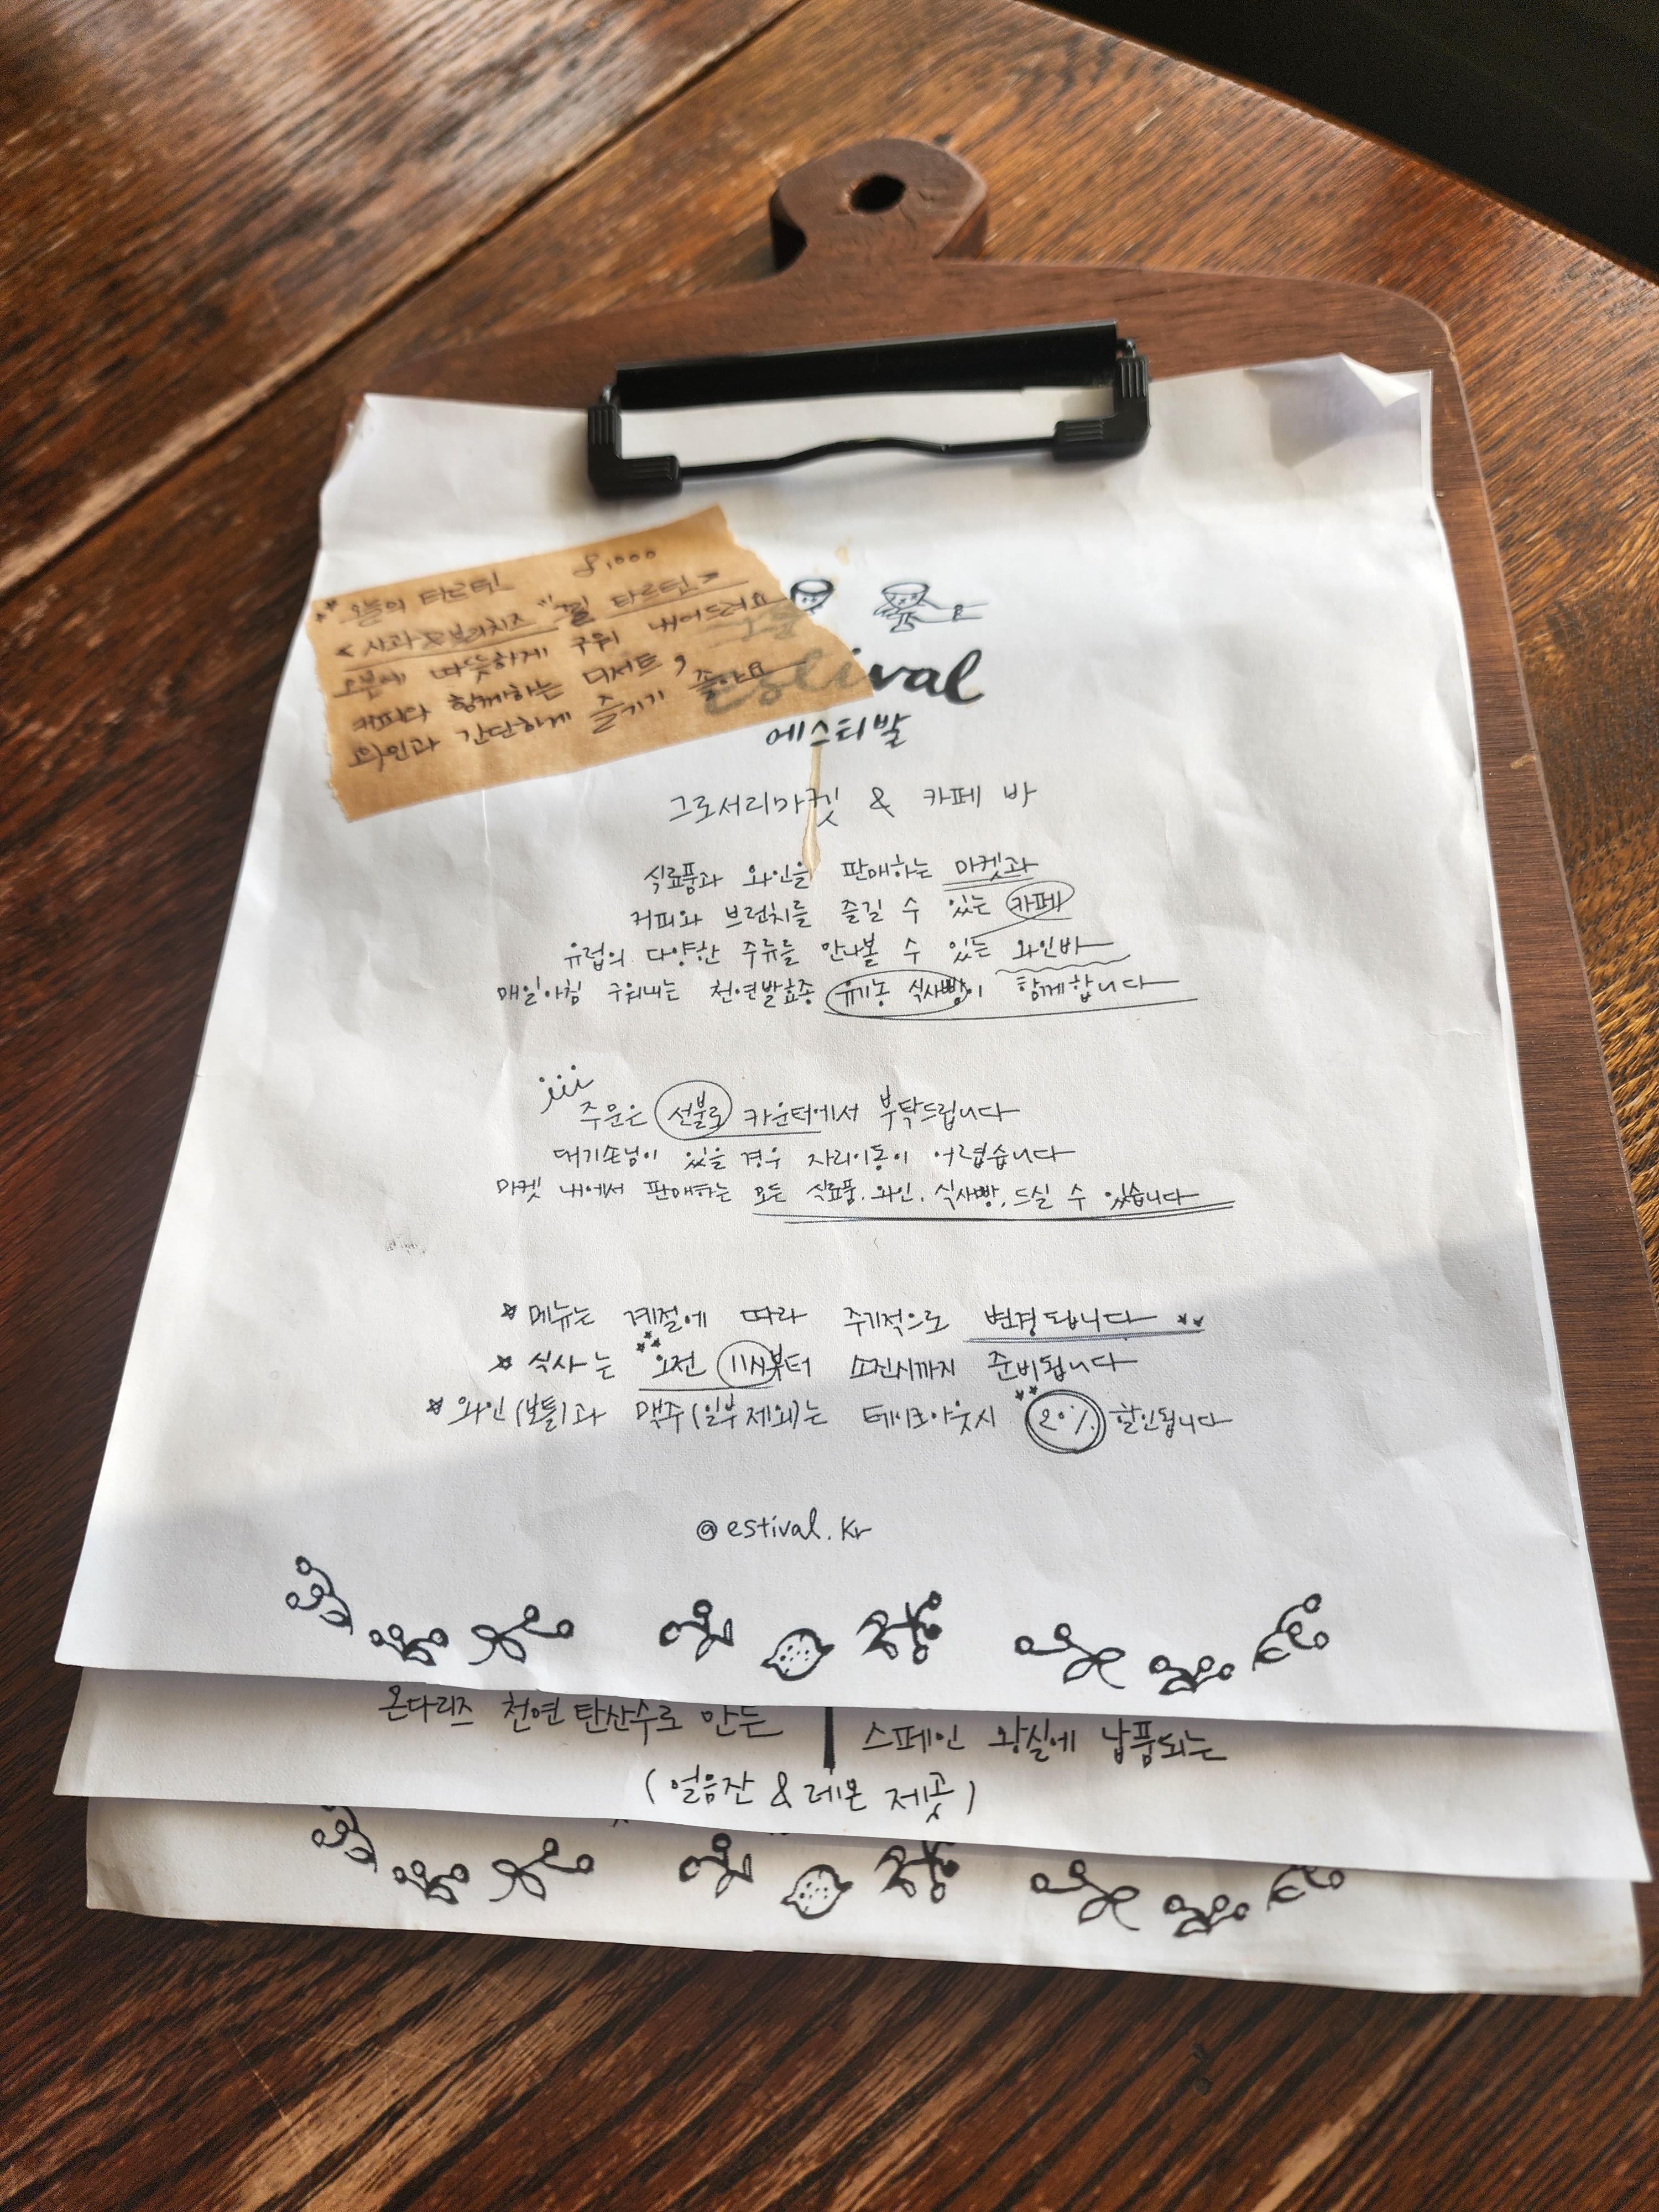 오늘의 타르틴 8,000
<사과&브리치즈 "꿀" 타르틴>
오븐에 따뜻하게 구워 내어드려요
커피와 함께하는 디저트,
와인과 간단하게 즐기기 좋아요
Estival
에스티발
그로서리마켓 & 카페 바
식료품과 와인을 판매하는 마켓과
커피와 브런치를 즐길 수 있는 카페
유럽의 다양한 주류를 만나볼 수 있는 와인바
매일아침 구워내는 천연발효종 유기농 식사빵이 함께합니다
주문은 선불로 카운터에서 부탁드립니다
대기손님이 있을 경우 자리이동이 어렵습니다
마켓 내에서 판매하는 모든 식료품, 와인, 식사빵, 드실 수 있습니다
메뉴는 계절에 따라 주기적으로 변경됩니다
식사는 오전 11시부터 소진시까지 준비됩니다
와인(보틀)과 맥주(일부제외)는 테이크아웃시 20% 할인됩니다
@estival.kr
온다리즈 천연탄산수로 만든
스페인 왕실에 납품되는
(얼음잔 & 레몬 제공)